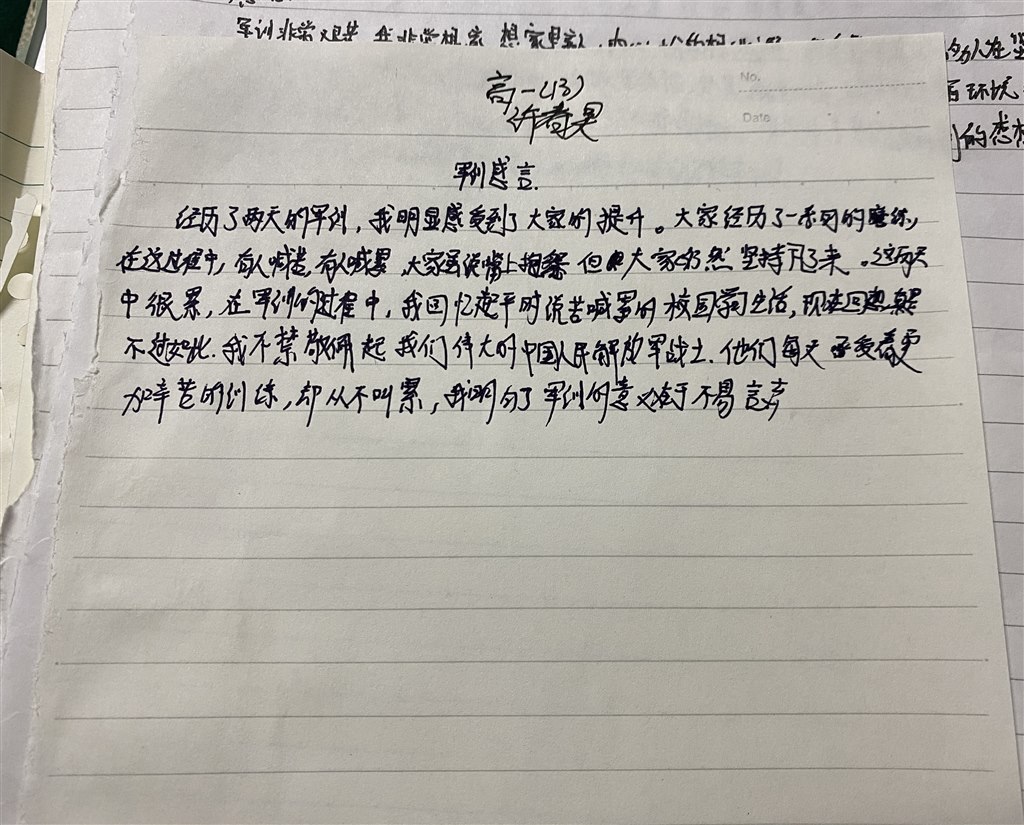 军训非常艰苦 我非常想家 想家里人
的人在坚
与环境
的态
No.
高一(13)
Date
许
军训感言.
经历了两天的军训，我明显感受到了大家的提升。大家经历了一系列的磨练，
在这过程中，有人喊苦，有人喊累，大家虽说嘴上抱怨 但大家仍然坚持了下来。这两天
中很累，在军训的过程中，我回忆起平时说苦喊累的校园学习生活，现在回想
不过如此.我不禁敬佩起我们伟大的中国人民解放军战士.他们每天承受着更
加辛苦的训练，却从不叫累，我明白了军训的意义在于不易言弃